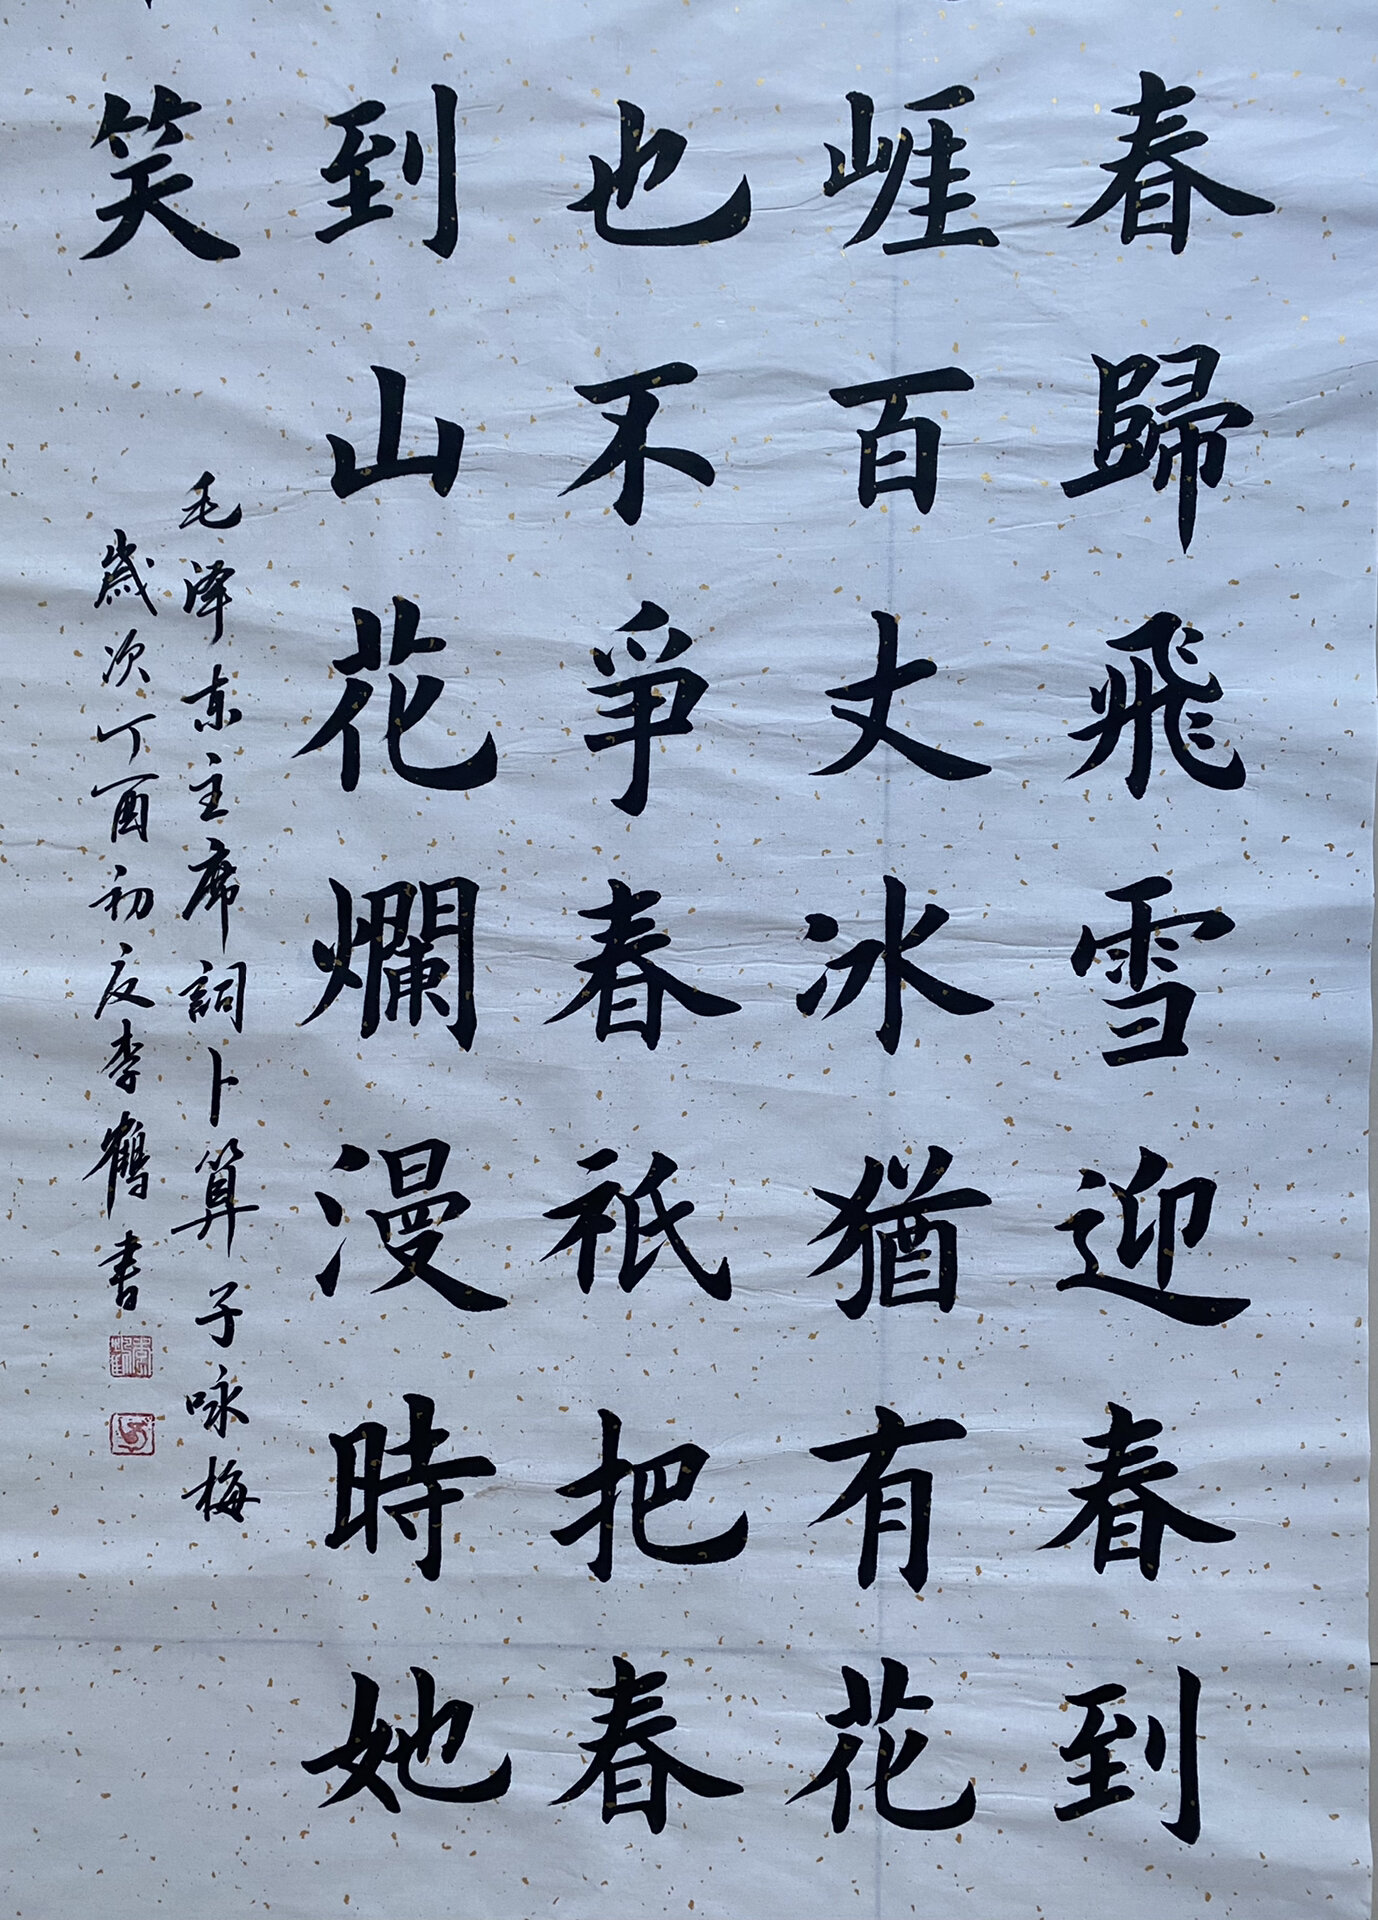 春歸飛雪迎春到
崕百丈冰猶有花
也不爭春祇把春
到山花爛漫時她
笑
毛泽东主席詞卜算子咏梅
歲次丁酉初夏李鶴書